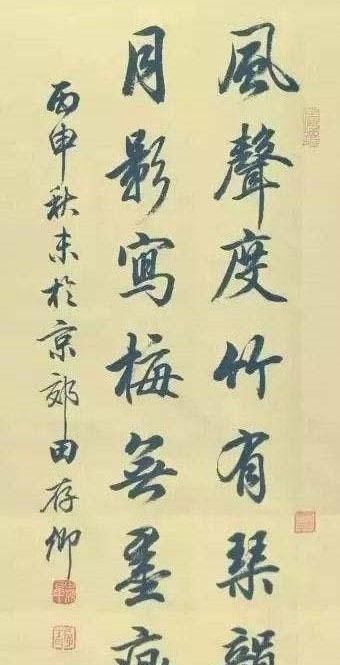 風聲度竹有琴韻
月影寫梅無墨痕
丙申秋末於京郊田存卿